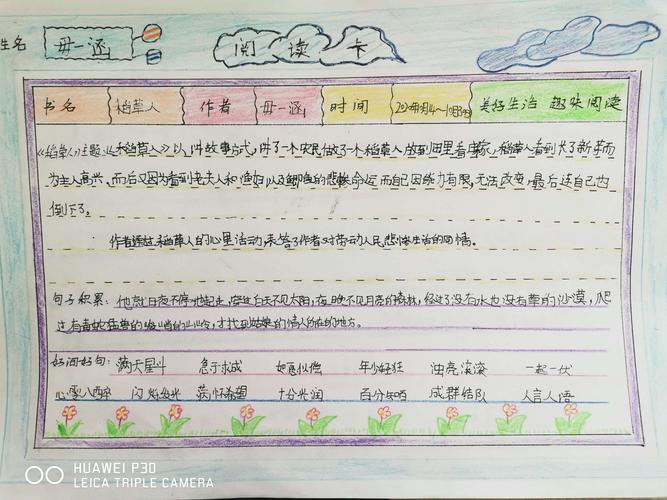 姓名 毋一涵 阅读卡
书名 稻草人 作者 毋一涵 时间 美好生活 趣味阅读
《稻草人》主题:《稻草人》以讲故事方式,讲了一个农民做了一个稻草人放到田里看庄稼,稻草人看到长了新芽而
为主人高兴。而后又因为看到老夫人和渔妇以及鲫鱼的悲惨命运而自己因能力有限,无法改变,最后连自己也
倒下了。
作者通过稻草人的心里活动,表答了作者对劳动人民悲惨生活的同情。
句子积累:他就日夜不停地赶走,穿过白天不见太阳,夜晚不见月亮的森林,经过了没有水也没有草的沙漠,爬
过有毒蛇猛兽的山岭,才找到姑娘的情人所在的地方。
好词好句:满天星斗 急于求成 如意似傥 年少轻狂 浊亮滚滚 一起一伏
闪烁发光 满怀希望 十分光润 百分 成群结队 人言人语
HUAWEI P30
LEICA TRIPLE CAMERA